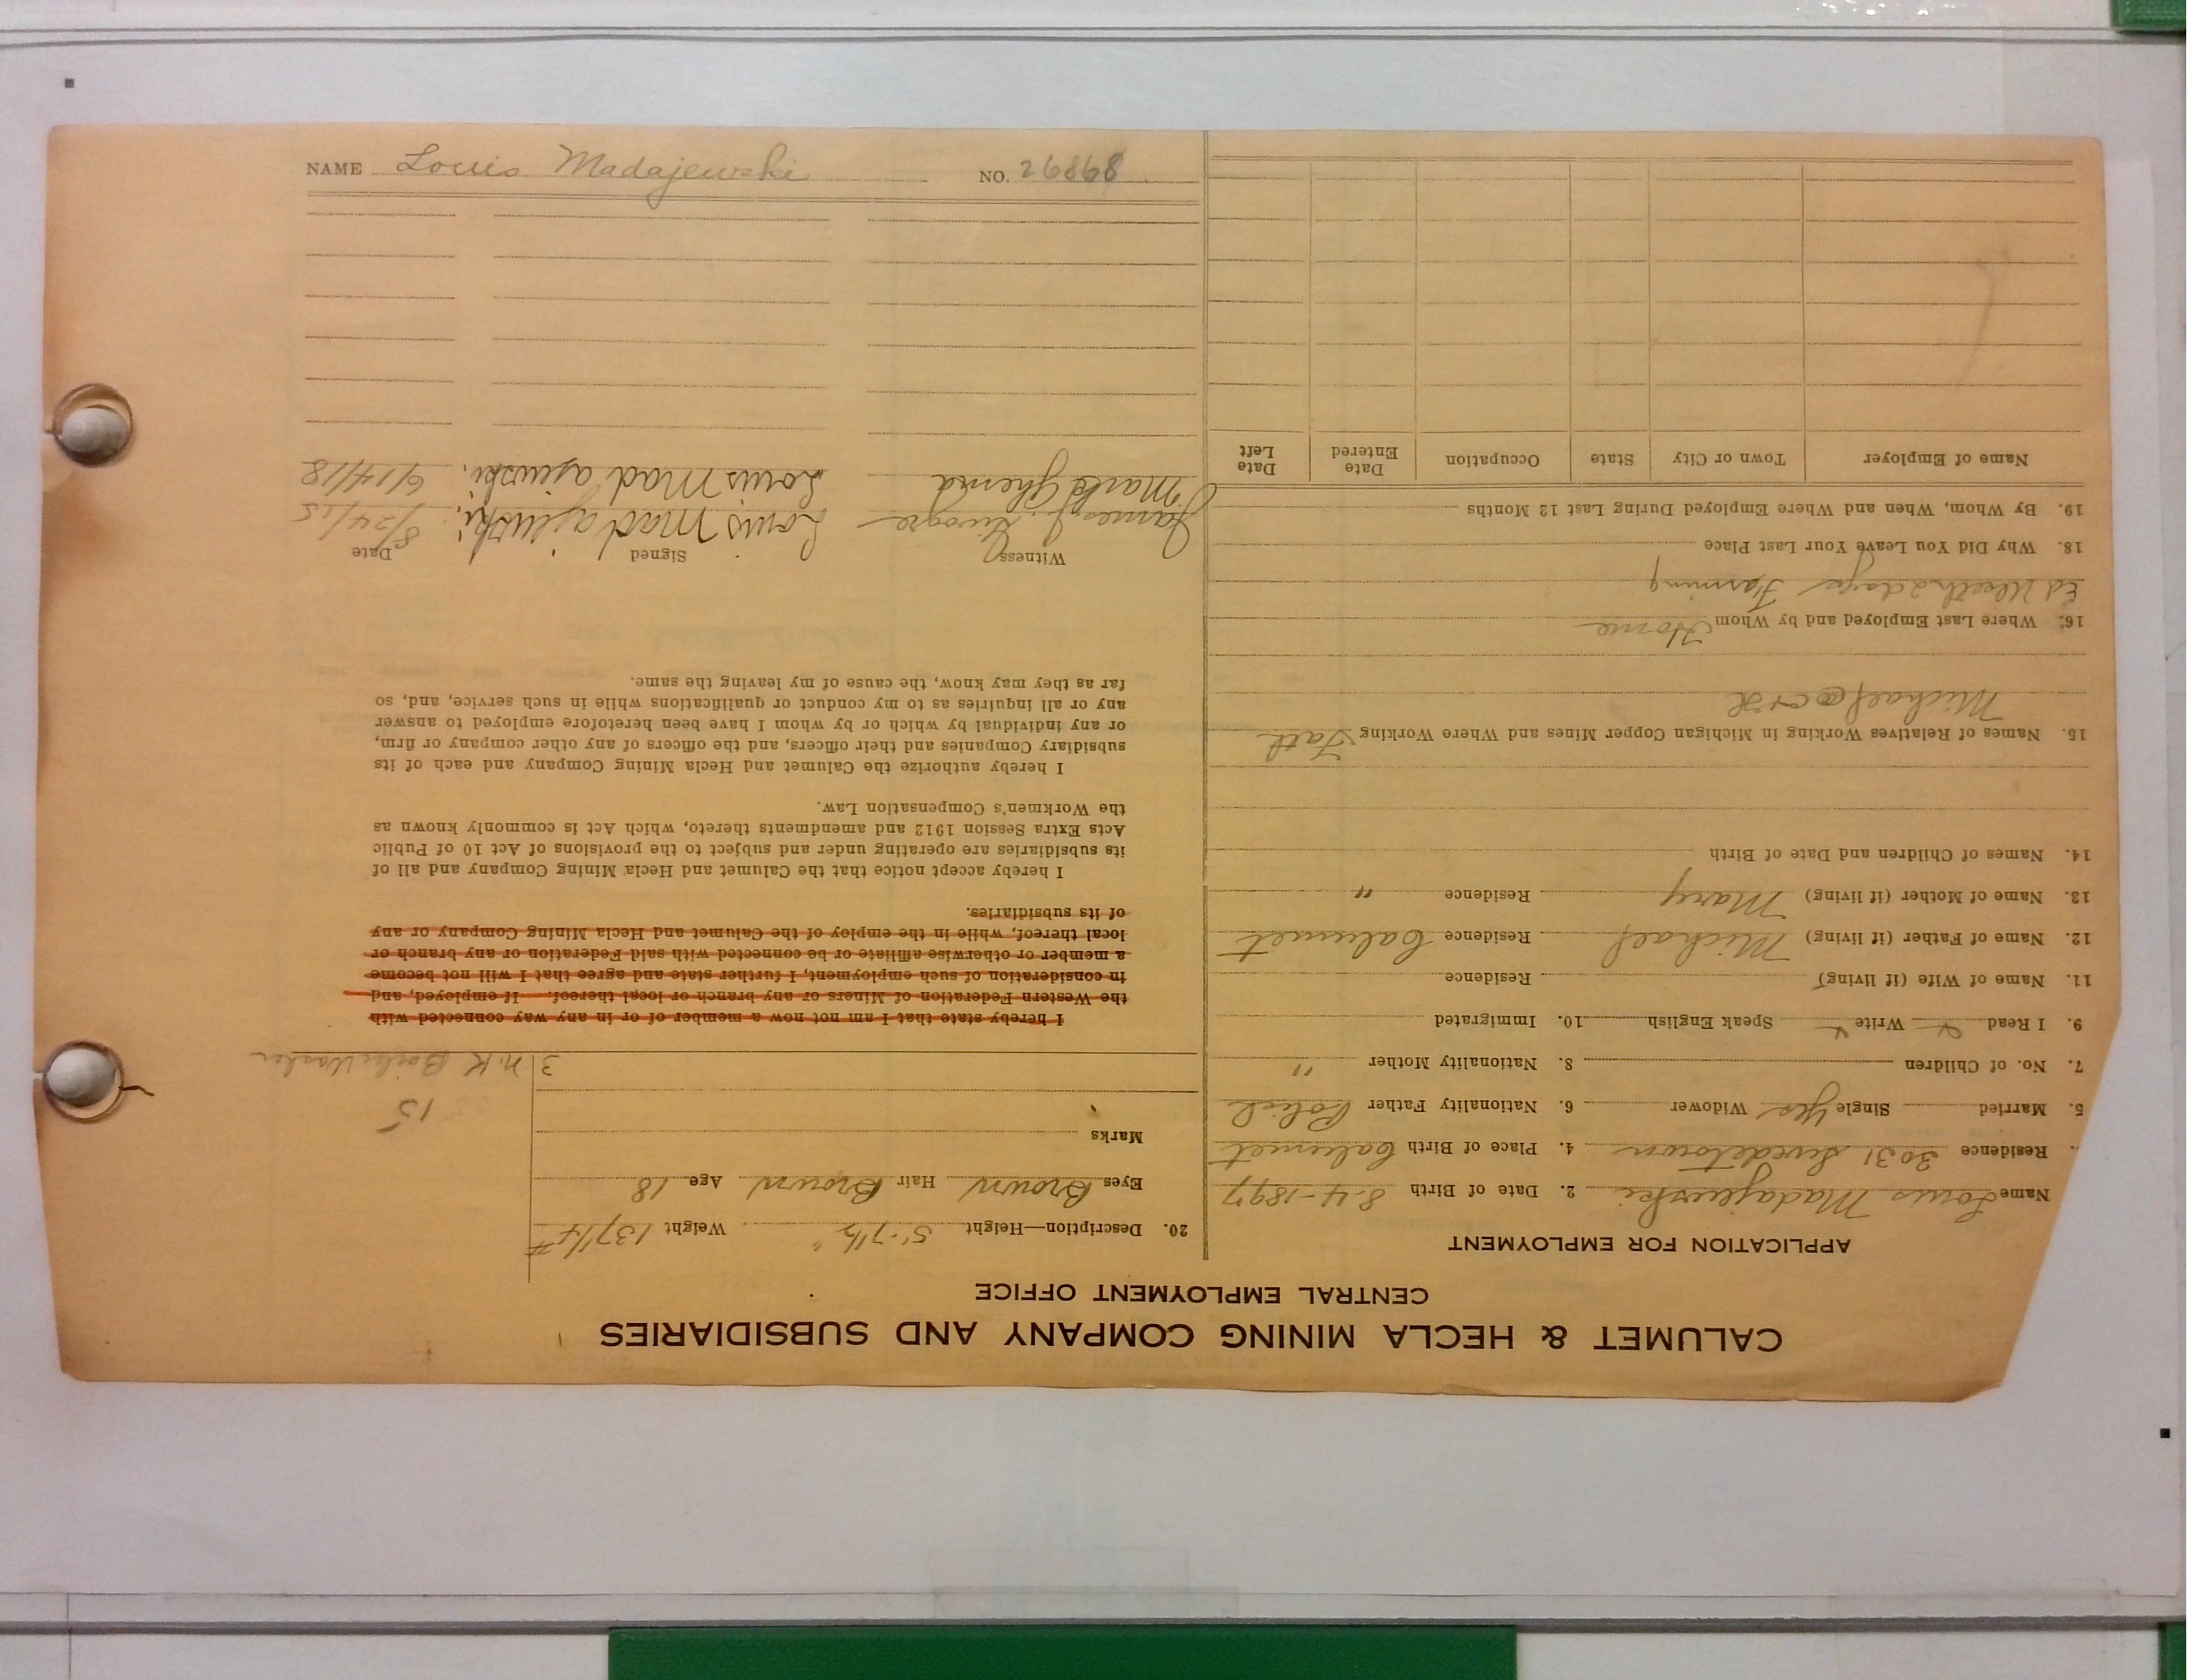 CALUMET & HECLA MINING COMPANY AND SUBSIDIARIES
CENTRAL EMPLOYMENT OFFICE
APPLICATION FOR EMPLOYMENT
Name Louis Madajewski 2. Date of Birth 8-4-1897
Residence 3031 Swedetown 4. Place of Birth Calumet
5. Married Single Yes Widower 6. Nationality Father Polish
7. No. of Children 8. Nationality Mother "
9. I Read Write Speak English 10. Immigrated
11. Name of Wife (if living) Residence
12. Name of Father (if living) Michael Residence Calumet
13. Name of Mother (if living) Mary Residence "
14. Names of Children and Date of Birth
15. Names of Relatives Working in Michigan Copper Mines and Where Working Fath
Michael @ C+H
16. Where Last Employed and by Whom Home
Farming
18. Why Did You Leave Your Last Place
19. By Whom, When and Where Employed During Last 12 Months
Name of Employer Town or City State Occupation Date Entered Date Left
20. Description—Height 5'-7½" Weight 137¼#
Eyes Brown Hair Brown Age 18
Marks
15
3 N.K. Boiler Washer
I hereby state that I am not now a member of or in any way connected with
the Western Federation of Miners or any branch or local thereof. If employed, and
in consideration of such employment, I further state and agree that I will not become
a member or otherwise affiliate or be connected with said Federation or any branch or
local thereof, while in the employ of the Calumet and Hecla Mining Company or any
of its subsidiaries.
I hereby accept notice that the Calumet and Hecla Mining Company and all of
its subsidiaries are operating under and subject to the provisions of Act 10 of Public
Acts Extra Session 1912 and amendments thereto, which Act is commonly known as
the Workmen's Compensation Law.
I hereby authorize the Calumet and Hecla Mining Company and each of its
subsidiary Companies and their officers, and the officers of any other company or firm,
or any individual by which or by whom I have been heretofore employed to answer
any or all inquiries as to my conduct or qualifications while in such service, and, so
far as they may know, the cause of my leaving the same.
Witness Signed Date
James J. Louis Madajewski. 8/24/15
Mark Louis Madajewski. 6/14/18
NAME Louis Madajewski NO. 26868